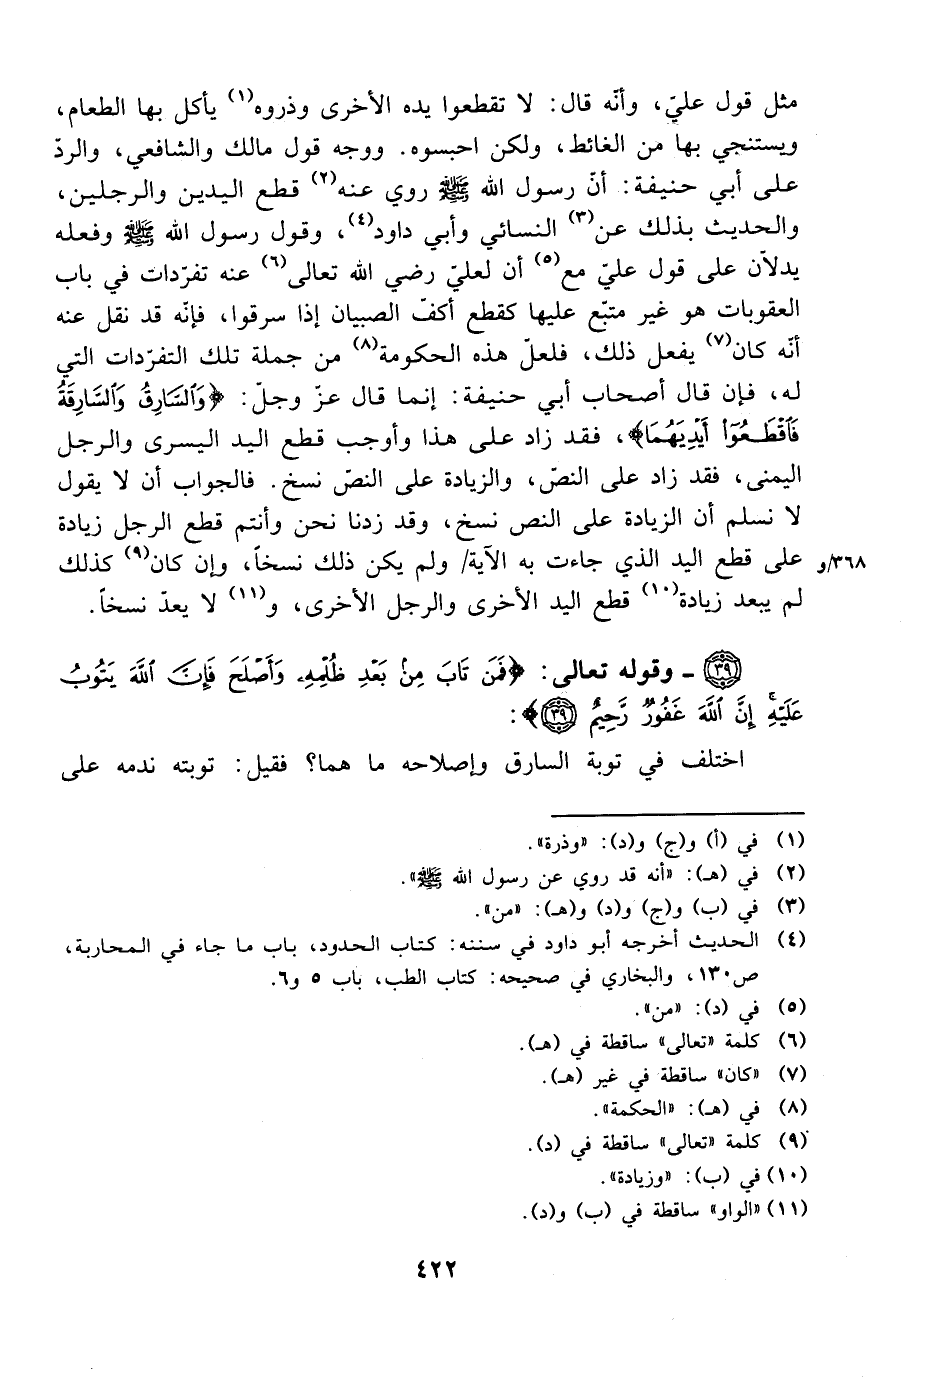 مثل قول عليّ، وأنّه قال: لا تقطعوا يده الأخرى وذروه(١) يأكل بها الطعام،
ويستنجي بها من الغائط، ولكن احبسوه. ووجه قول مالك والشافعي، والردّ
على أبي حنيفة: أنّ رسول الله ﷺ روي عنه(٢) قطع اليدين والرجلين،
والحديث بذلك عن(٣) النسائي وأبي داود(٤)، وقول رسول الله ﷺ وفعله
يدلاّن على قول عليّ مع(٥) أن لعليّ رضي الله تعالى(٦) عنه تفرّدات في باب
العقوبات هو غير متبّع عليها كقطع أكفّ الصبيان إذا سرقوا، فإنّه قد نقل عنه
أنّه كان(٧) يفعل ذلك، فلعلّ هذه الحكومة(٨) من جملة تلك التفرّدات التي
له، فإن قال أصحاب أبي حنيفة: إنما قال عزّ وجلّ: ﴿وَٱلسَّارِقُ وَٱلسَّارِقَةُ
فَٱقْطَعُوٓا۟ أَيْدِيَهُمَا﴾، فقد زاد على هذا وأوجب قطع اليد اليسرى والرجل
اليمنى، فقد زاد على النصّ، والزيادة على النصّ نسخ. فالجواب أن لا يقول
لا نسلم أن الزيادة على النص نسخ، وقد زدنا نحن وأنتم قطع الرجل زيادة
٣٦٨/و على قطع اليد الذي جاءت به الآية/ ولم يكن ذلك نسخاً، وإن كان(٩) كذلك
لم يبعد زيادة(١٠) قطع اليد الأخرى والرجل الأخرى، و(١١) لا يعدّ نسخاً.
(٣٩) ـ وقوله تعالى: ﴿فَمَن تَابَ مِنۢ بَعْدِ ظُلْمِهِۦ وَأَصْلَحَ فَإِنَّ ٱللَّهَ يَتُوبُ
عَلَيْهِۗ إِنَّ ٱللَّهَ غَفُورٌ رَّحِيمٌ (٣٩)﴾:
اختلف في توبة السارق وإصلاحه ما هما؟ فقيل: توبته ندمه على
(١) في (أ) و(ج) و(د): «وذرة».
(٢) في (هـ): «أنه قد روي عن رسول الله ﷺ».
(٣) في (ب) و(ج) و(د) و(هـ): «من».
(٤) الحديث أخرجه أبو داود في سننه: كتاب الحدود، باب ما جاء في المحاربة،
ص١٣٠، والبخاري في صحيحه: كتاب الطب، باب ٥ و٦.
(٥) في (د): «من».
(٦) كلمة «تعالى» ساقطة في (هـ).
(٧) «كان» ساقطة في غير (هـ).
(٨) في (هـ): «الحكمة».
(٩) كلمة «تعالى» ساقطة في (د).
(١٠) في (ب): «وزيادة».
(١١) «الواو» ساقطة في (ب) و(د).
٤٢٢